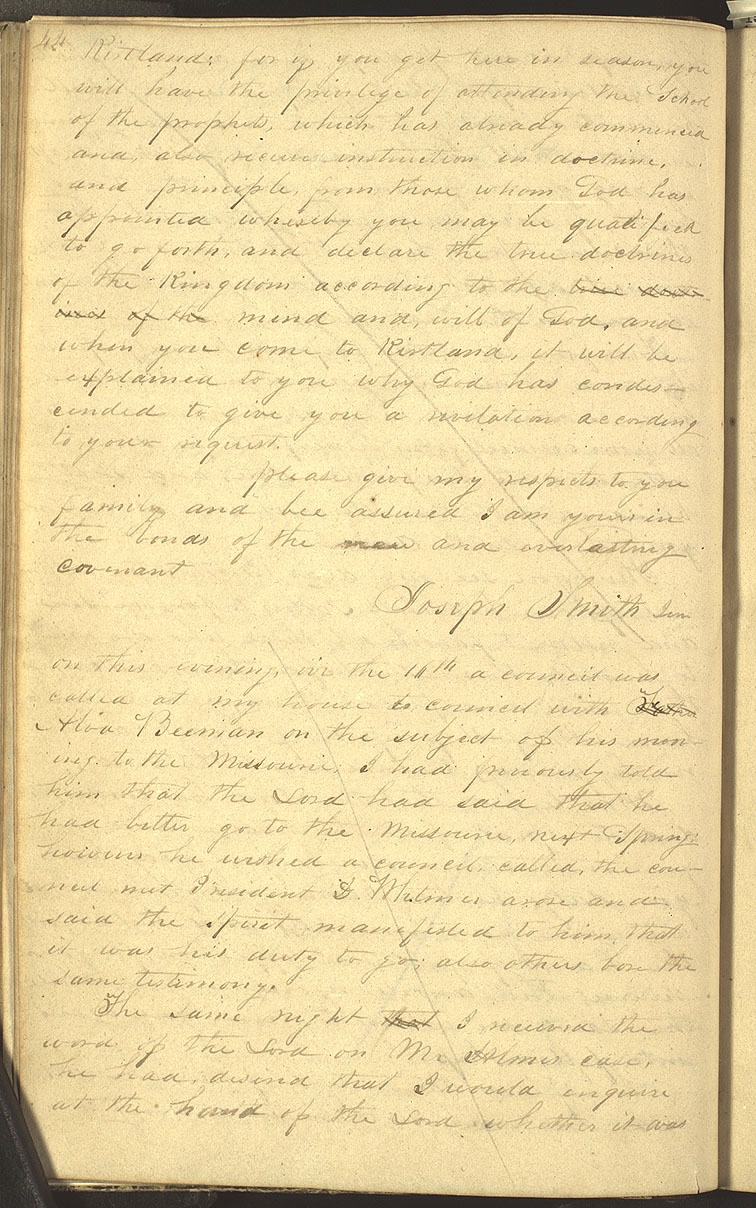 44 Kirtland; for if you get here in season, you
will have the privilege of attending the School
of the prophets, which has already commenced
and, also recieve instruction in doctrine,
and principle, from those whom God has
appointed whereby you may be qualified
to go forth, and declare the true doctrines
of the Kingdom according to the true doctr-
ines of the mind and, will of God, and
when you come to Kirtland, it will be
explained to you why God has condes-
cended to give you a revelation according
to your request.
please give my respects to you
family, and bee assured I am yours in
the bonds of the new and everlasting
covenant
Joseph Smith Jun
on this evening, viz the 14th a council was
called at my house to council with
Alva Beeman on the subject of his mov-
ing to the Missourie; I had previously told
him that the Lord had said that he
had better go to the Missourie, next Spring:
however he wished a council, called, the cou-
ncil met President D. Witmer arose and
said the Spirit manifested to him that
it was his duty to go; also others bore the
same testimony.
The same night that I received the
word of the Lord on Mr. Holmes case,
he had desired that I would inquire
at the hand of the Lord whether it was